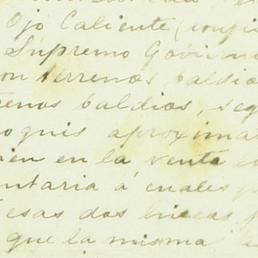 Ojo Caliente (confi
Supremo Gobi
on terrenos baldio
renos baldios, seg
oquis aproxima
ien en la venta e
ntaria á cuales
esas dos lineas,
que la misma